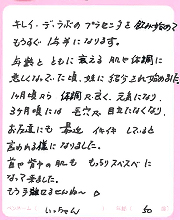 キレイ・デ・ラボのプラセンタを飲み始めて
もうすぐ1年半になります。
年齢とともに衰える肌や体調に
悲しくなっていた頃、妹に紹介され始めました。
1ヶ月頃から体調良く、元気になり
3ヶ月頃には毛穴が目立たなくなり
お友達にも最近イキイキしていると
言われる様になりました。
首や背中の肌ももっちりスベスベに
なって来ました。
もう手離せませんね〜
いっちゃん 50